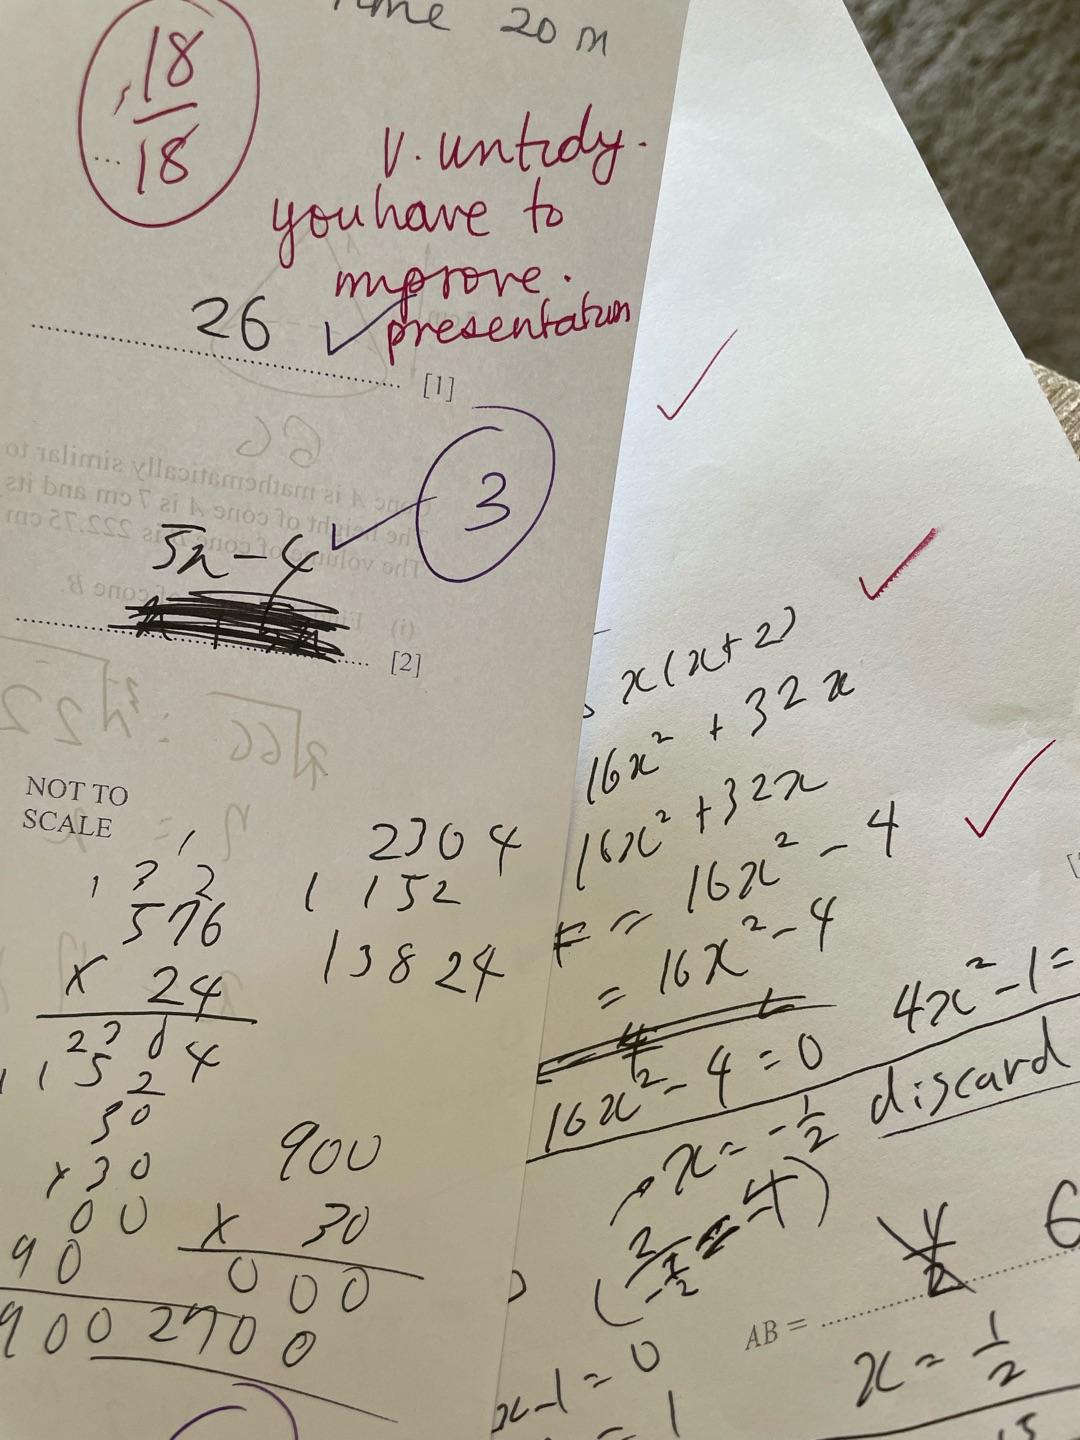 Time 20 m
18
18
V. untidy.
you have to
improve.
presentation
26
[1]
3
5n-4
[2]
NOT TO
SCALE
2304
1152
13824
576
x 24
2304
1152
30
x 30
00
90
900
900
x 30
000
2700
x(x+2)
16x² + 32x
16x² + 32x
= 16x² - 4
= 16x² - 4
16x² - 4 = 0
4x² - 1 =
x = -1/2 discard
AB =
6
x - 1 = 0
= 1
x = 1/2